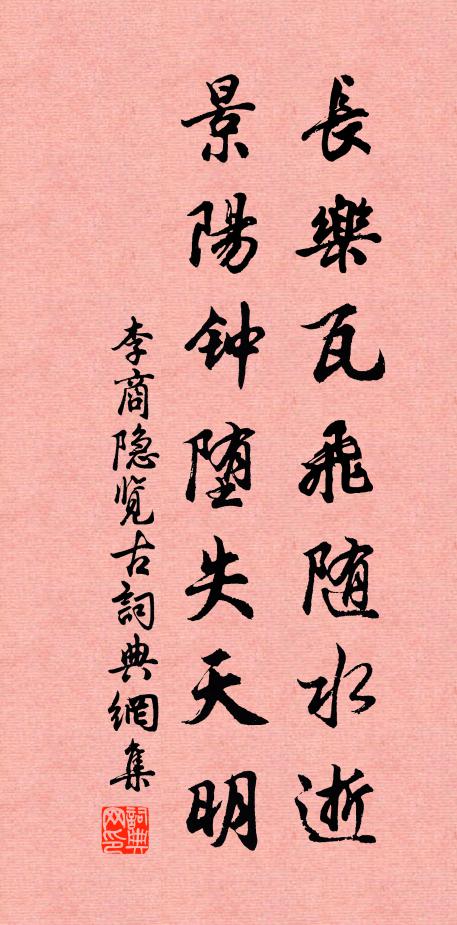 長樂瓦飛随水逝
景陽钟堕失天明
李商隐览古詞典網集
詞典网印